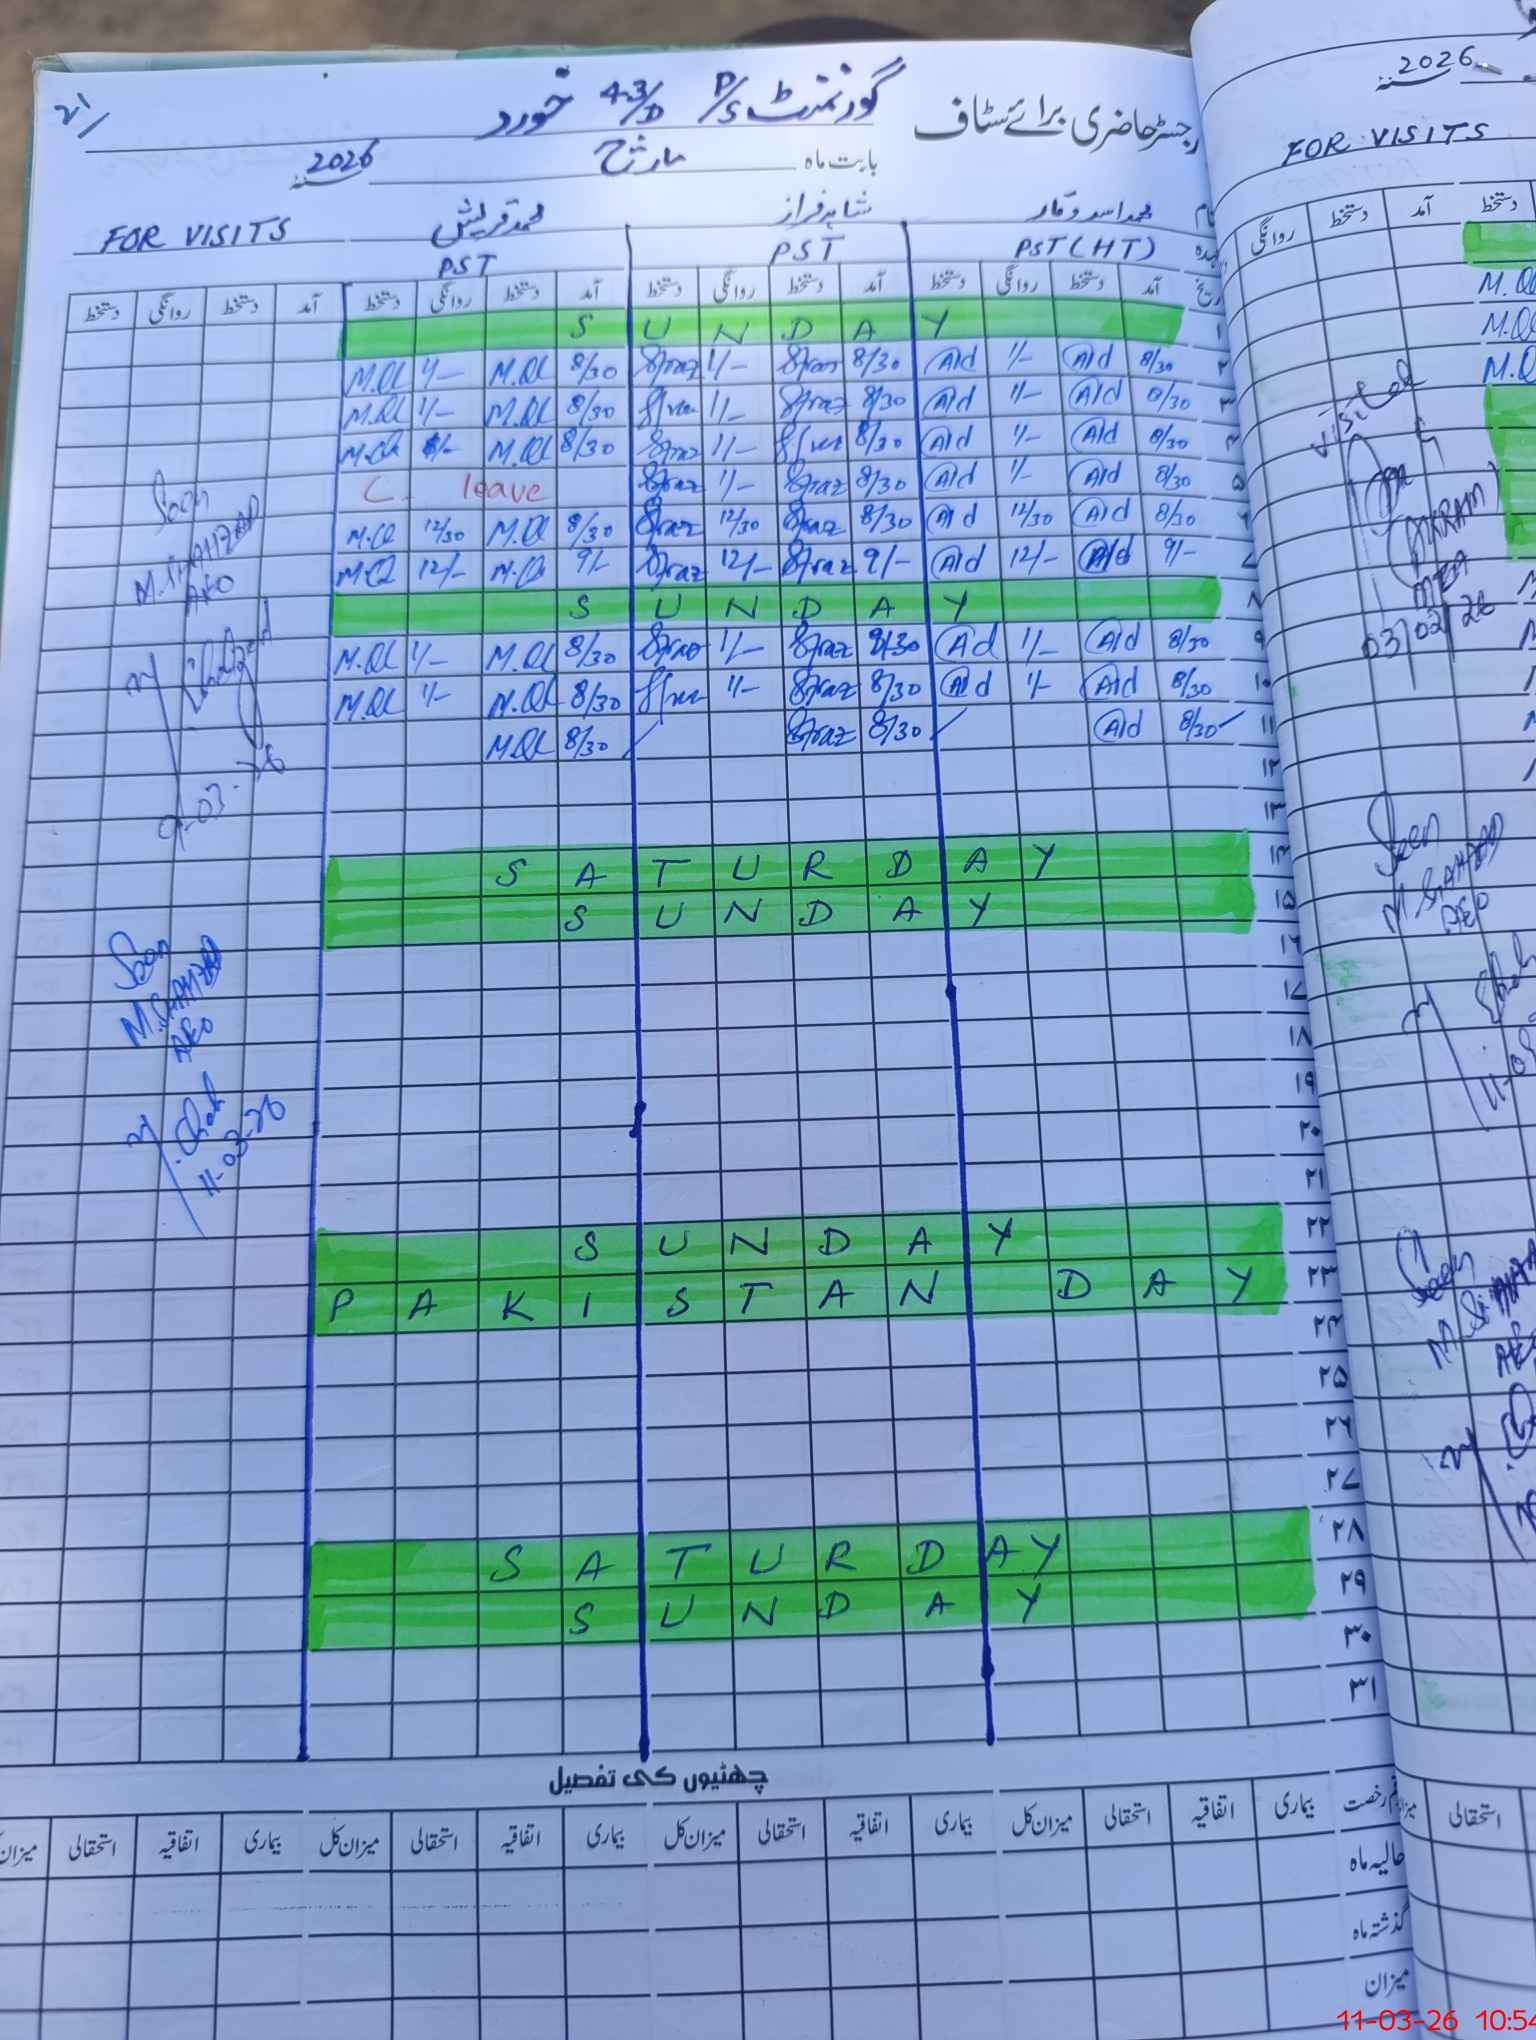 21/
رجسٹر حاضری برائے سٹاف گورنمنٹ P/S 43/D خورد
بابت ماہ مارچ 2026
نام محمد اسد وقار شاہد فراز محمد قریش FOR VISITS
عہدہ PST (HT) PST PST
تاریخ آمد دستخط روانگی دستخط آمد دستخط روانگی دستخط آمد دستخط روانگی دستخط آمد دستخط روانگی دستخط
۱ S U N D A Y
۲ 8/30 Ald 1/- Ald 8/30 Sfraz 1/- Sfraz 8/30 M.Ql 1/- M.Ql
۳ 8/30 Ald 1/- Ald 8/30 Sfraz 1/- 8/30 M.Ql 1/- M.Ql
۴ 8/30 Ald 1/- Ald 8/30 1/- Sfraz 8/30 M.Ql M.Ql
۵ 8/30 Ald 1/- Ald 8/30 Sfraz 1/- Sfraz C. leave
۶ 8/30 Ald 12/30 Ald 8/30 Sfraz 12/30 Sfraz 8/30 M.Ql 12/30 M.Ql
۷ 9/- Ald 12/- Ald 9/- Sfraz 12/- Sfraz 9/- M.Ql 12/- M.Ql
۸ S U N D A Y
۹ 8/30 Ald 1/- Ald 8/30 Sfraz 1/- Sfraz 8/30 M.Ql 1/- M.Ql
۱۰ 8/30 Ald 1/- Ald 8/30 Sfraz 1/- 8/30 M.Ql 1/- M.Ql
۱۱ 8/30 Ald 8/30 Sfraz 8/30 M.Ql
۱۲
۱۳
۱۴ S A T U R D A Y
۱۵ S U N D A Y
۱۶
۱۷
۱۸
۱۹
۲۰
۲۱
۲۲ S U N D A Y
۲۳ P A K I S T A N D A Y
۲۴
۲۵
۲۶
۲۷
۲۸ S A T U R D A Y
۲۹ S U N D A Y
۳۰
۳۱
Seen
M. SHAHZAD
AEO
9-03-26
Seen
M. SHAHZAD
AEO
11-03-26
چھٹیوں کی تفصیل
قسم رخصت بیماری اتفاقیہ استحقاقی میزان کل بیماری اتفاقیہ استحقاقی میزان کل بیماری اتفاقیہ استحقاقی میزان کل بیماری اتفاقیہ استحقاقی میزان
حالیہ ماہ
گذشتہ ماہ
میزان
2026
FOR VISITS
دستخط آمد دستخط روانگی
M.Q
M.Q
M.Q
Visited
(AKRAM)
MEA
03/02/26
Seen
M. SHAHZAD
AEO
Seen
استحقاقی
11-03-26 10:54